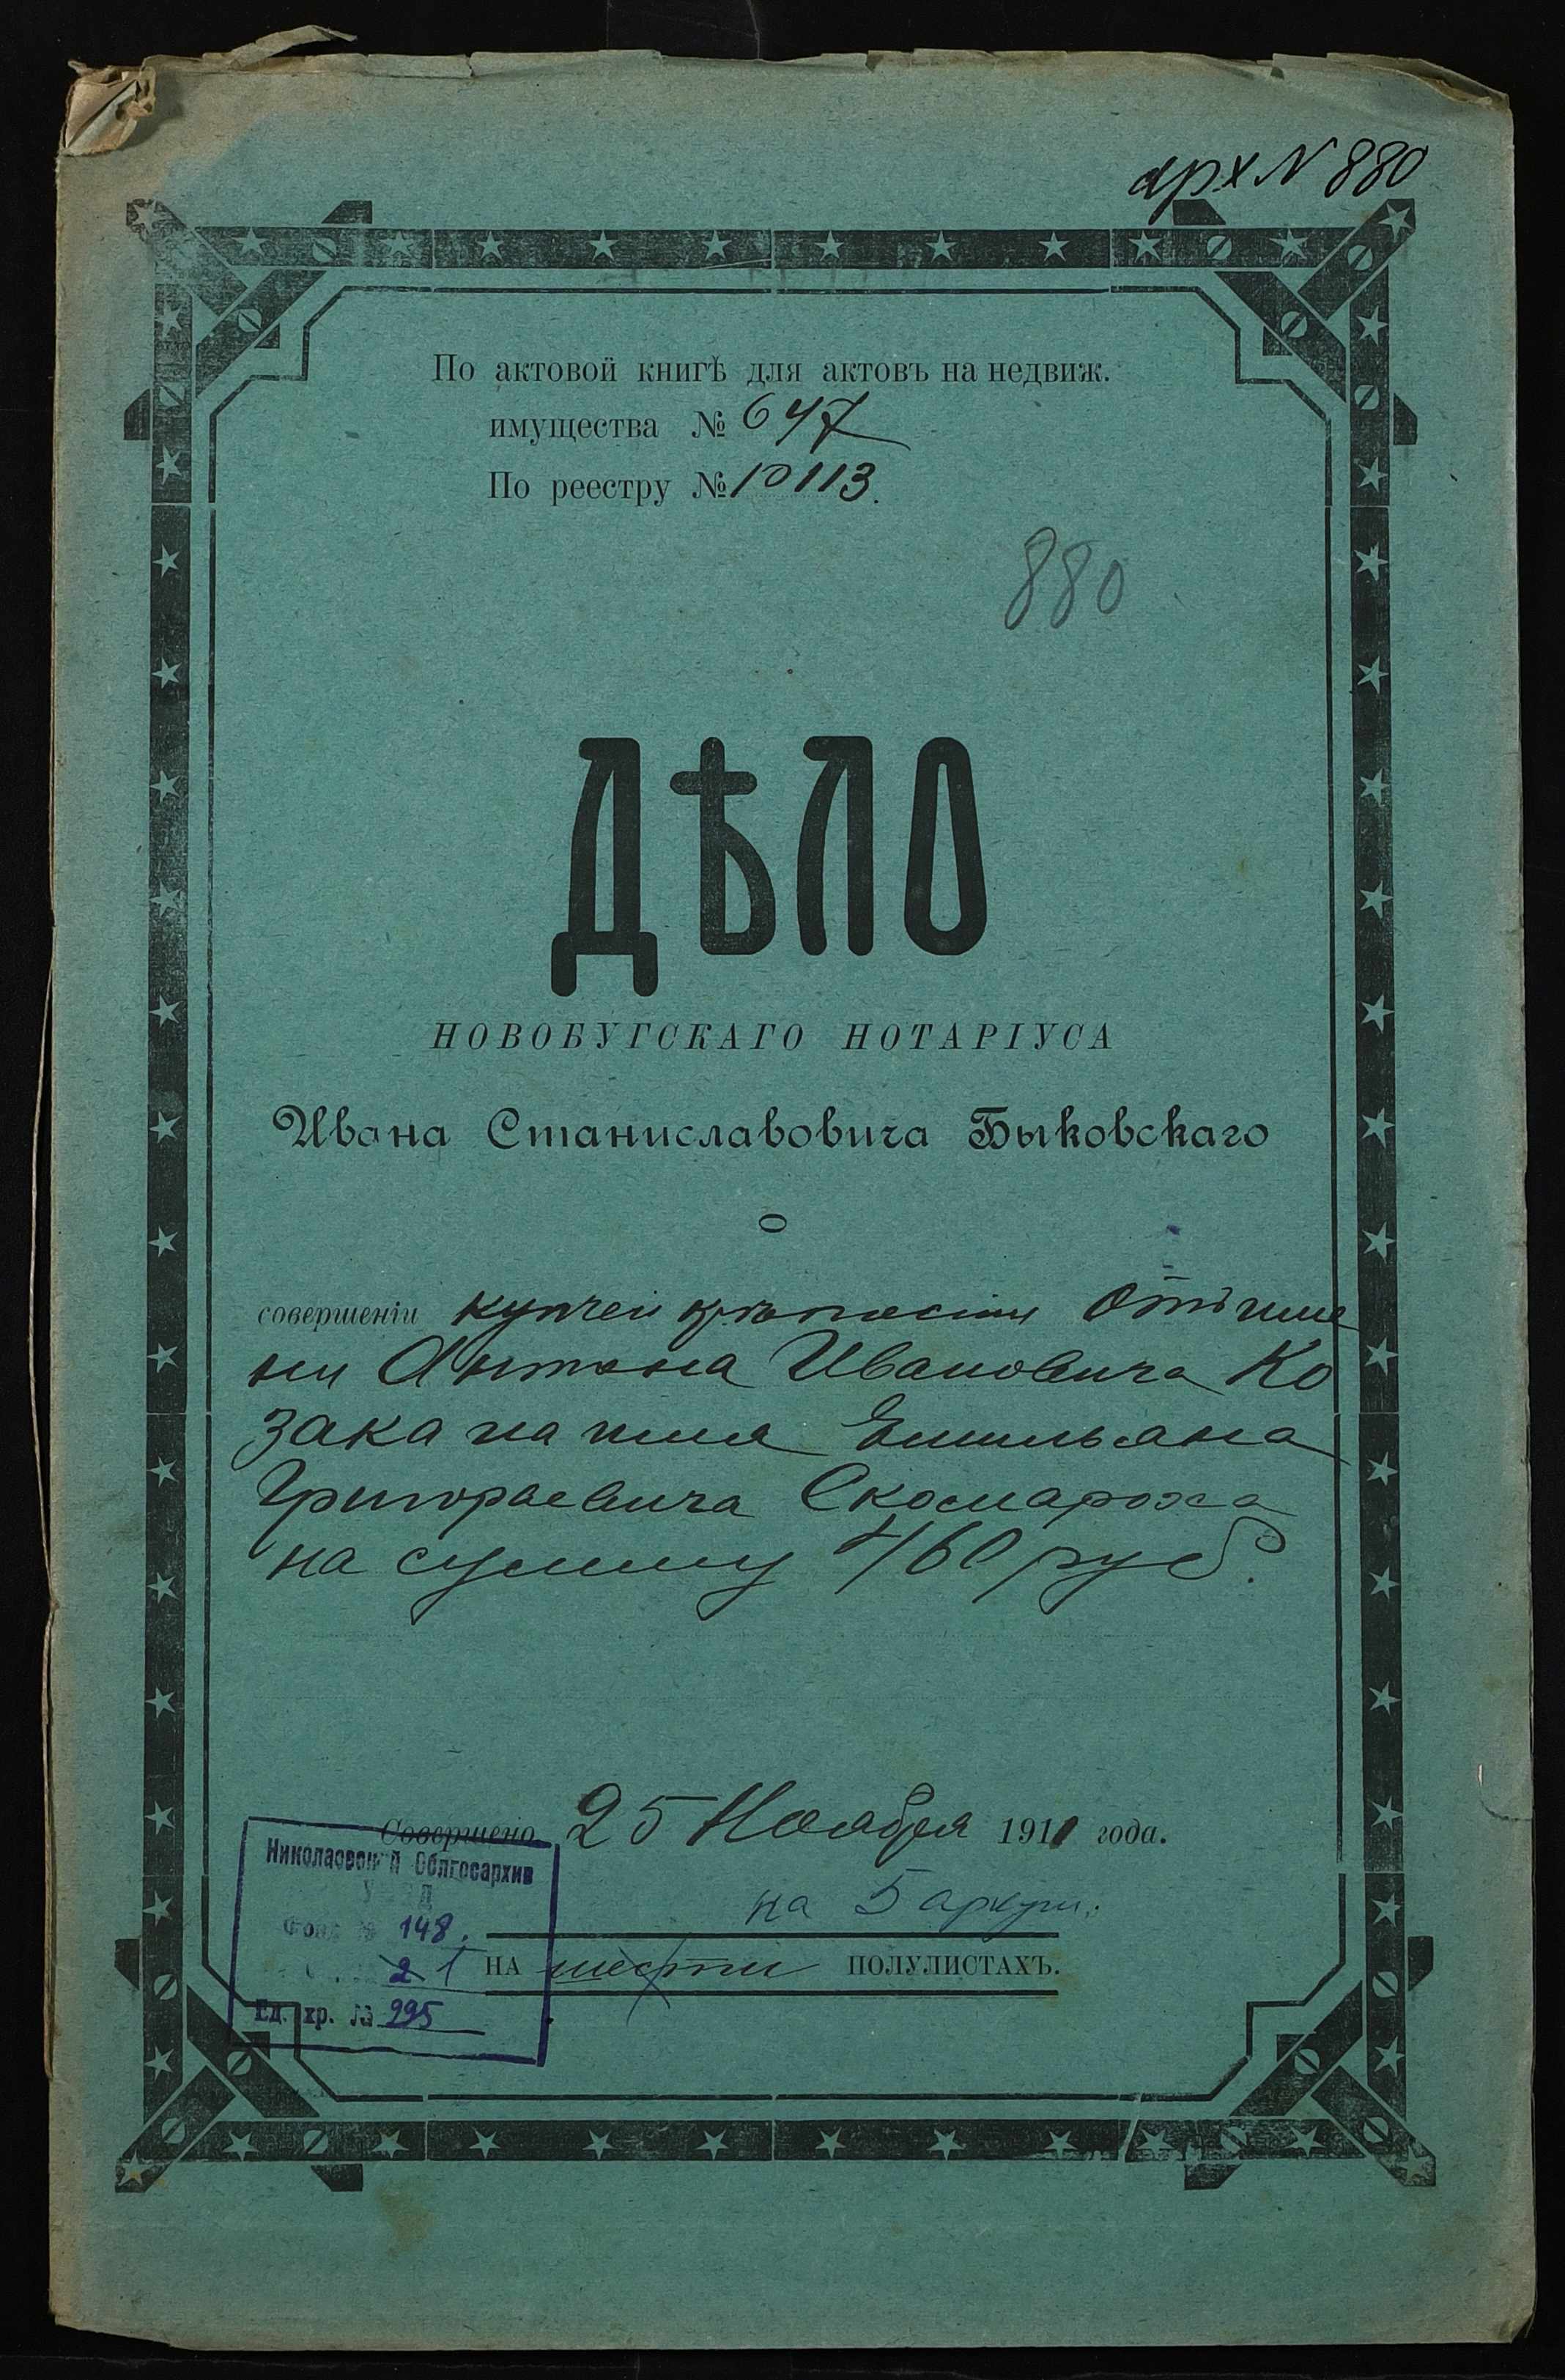 арх N 880
По актовой книгѣ для актовъ на недвиж.
имущества № 647
По реестру № 10113.
880
ДѢЛО
НОВОБУГСКАГО НОТАРІУСА
Ивана Станиславовича Быковскаго
о
совершеніи купчей крѣпости отъ име
ни Антона Ивановича Ко
зака на имя Емильяна
Григорьевича Скомароха
на сумму 460 руб.
Совершено 25 Ноября 1911 года.
на 5 аркуш.
НА шести ПОЛУЛИСТАХЪ.
Николаевский Облгосархив
Фонд № 148.
2 1
Ед. хр. № 295